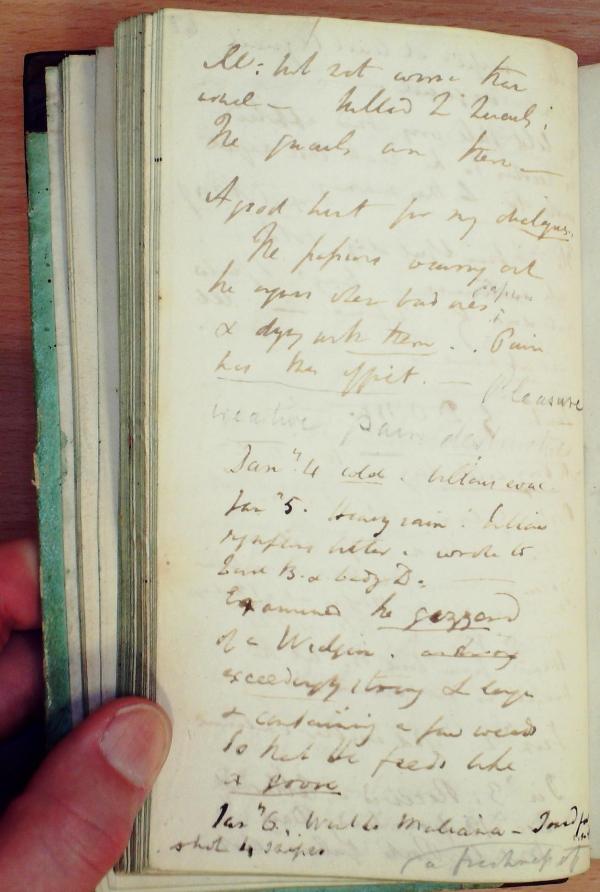 Ill: but not worse than
usual – killed 2 quails;
The quails are then –
A good hint for my dialogues.
The passions wearing out
the organs
& dying with them. . Pain
has this effect. – Pleasure
creative pain destructive
Jany. 4 cold. bilious
Jany 5. Heavy rain. bilious
symptoms better. wrote to
B. & Lady D.
Examined the gizzard
of a Widgeon.
exceedingly strong & large
& containing a few weeds
So that he feeds like
a goose
Jany 6. Walk Maliana –
shot 4 snipes